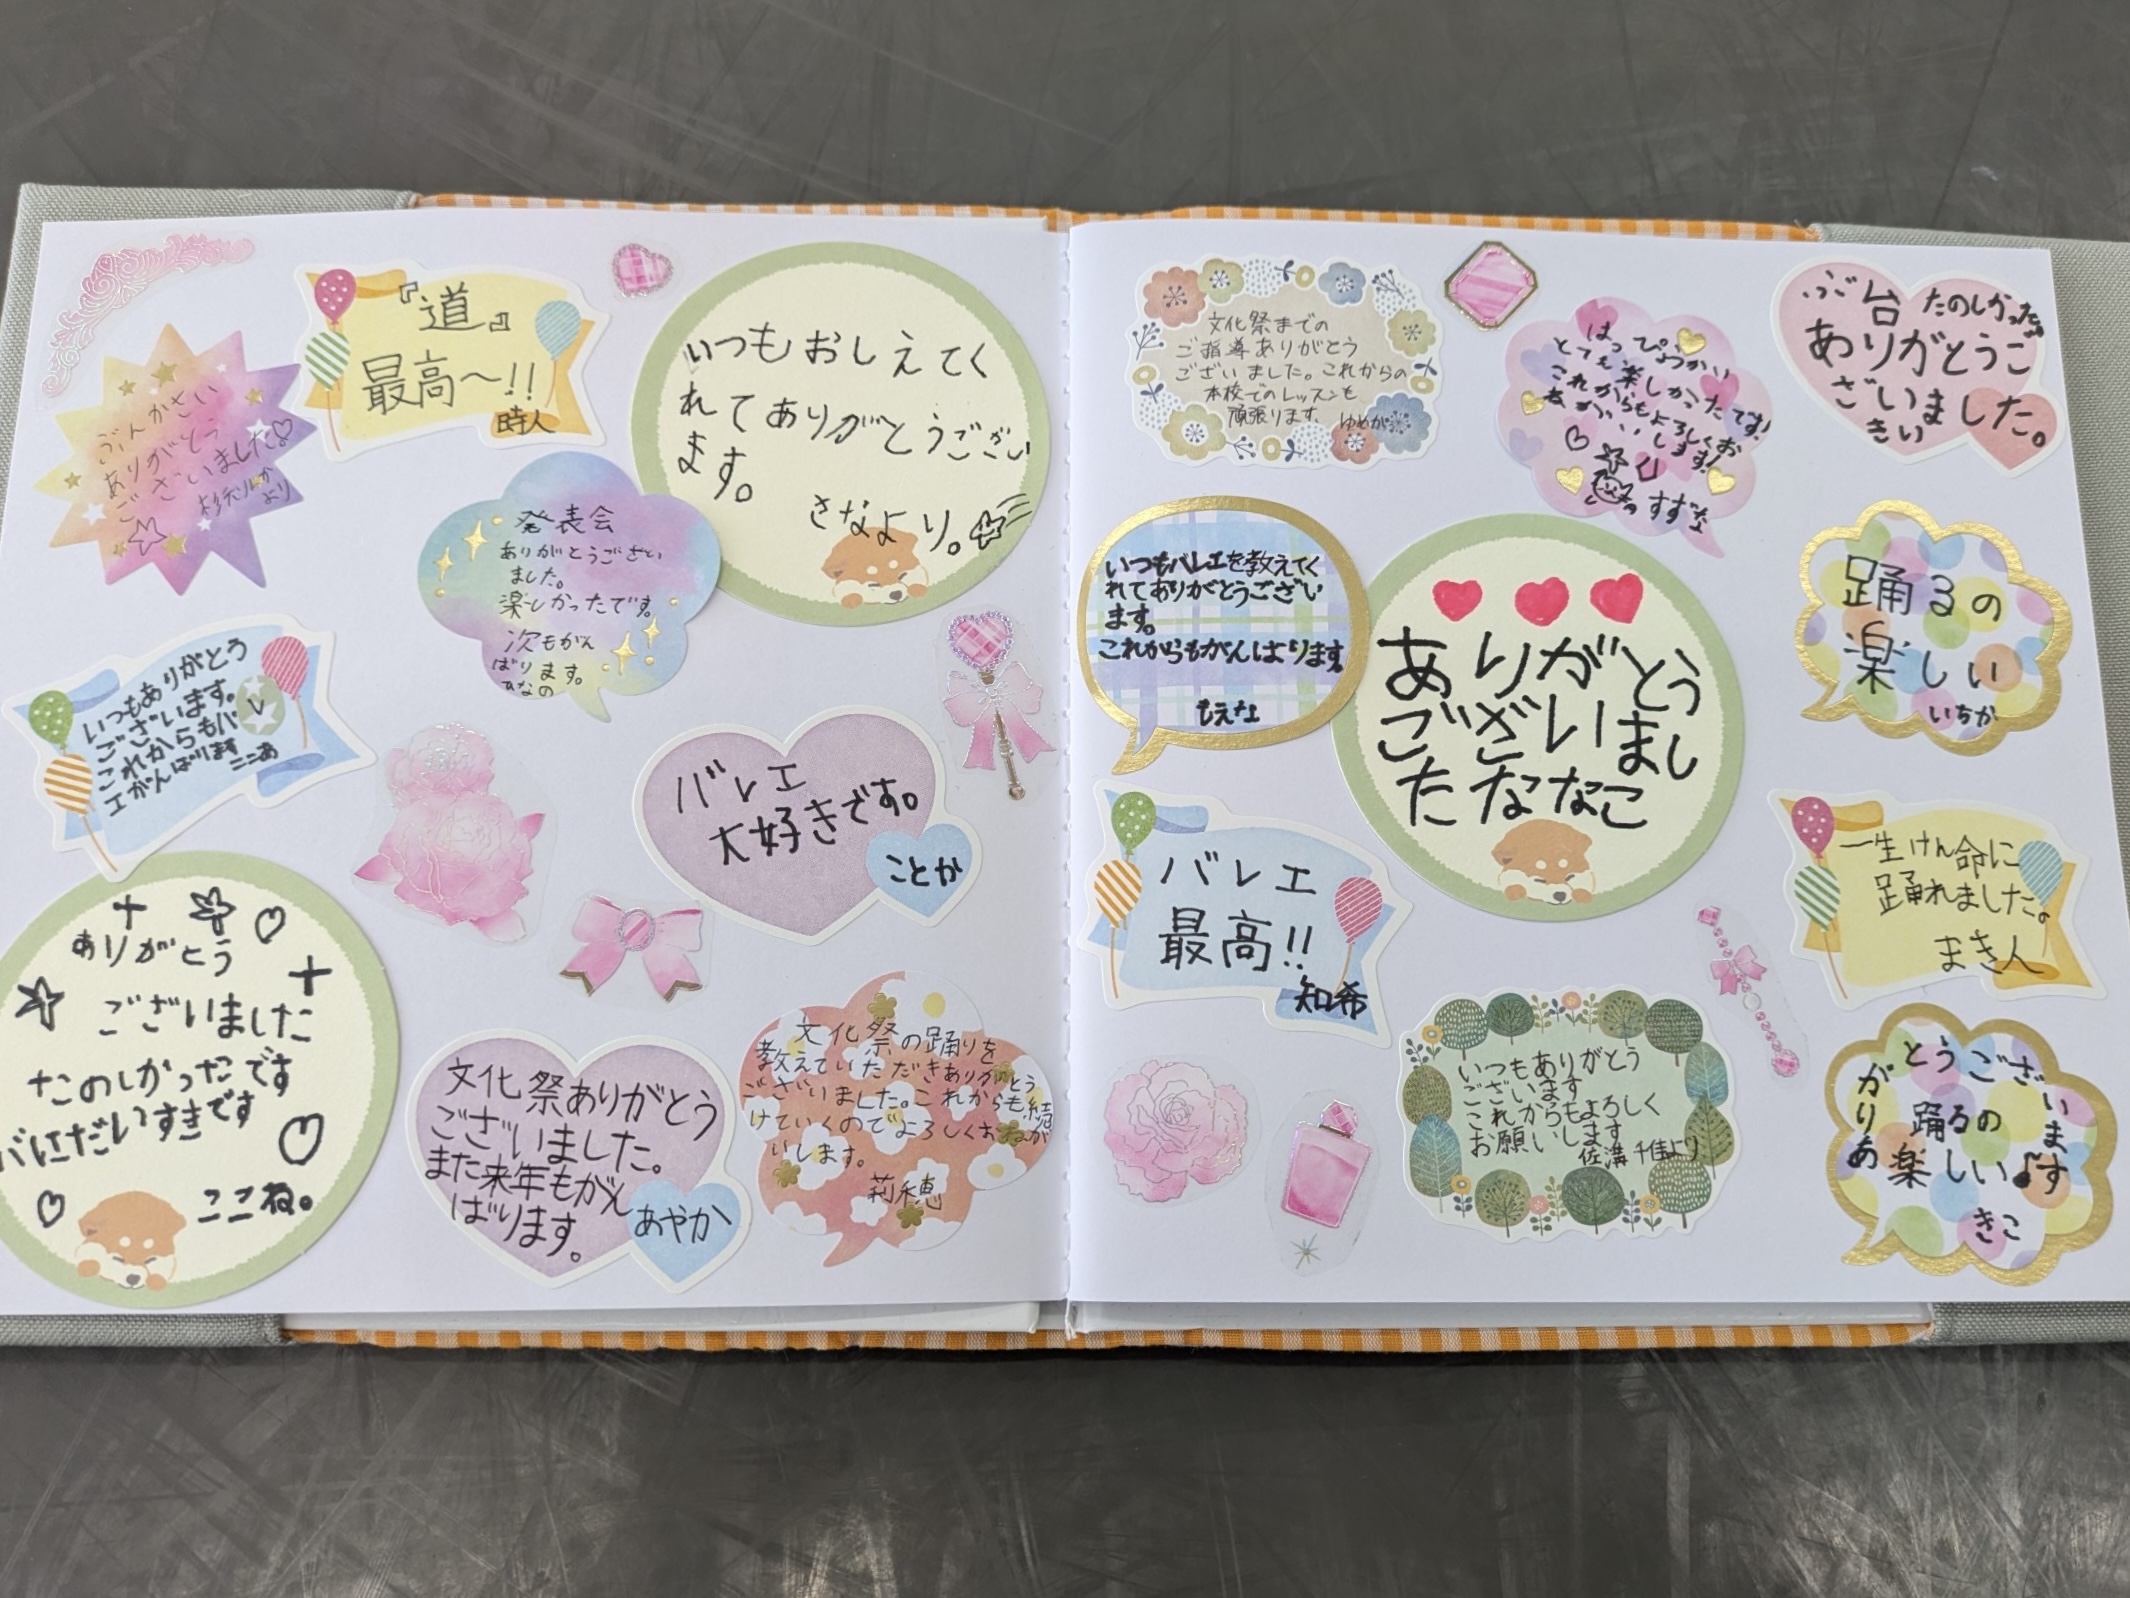 ぶんかさい
ありがとう
ございました♡
より
『道』
最高〜!!
時人
いつもおしえてく
れてありがとうござい
ます。
さなより。
発表会
ありがとうござい
ました。
楽しかったです。
次もがん
ばります。
ひなの
いつもありがとう
ございます。
これからもバレ
エがんばります
ここあ
バレエ
大好きです。
ことか
ありがとう
ございました
たのしかったです
だいすきです
ここね。
文化祭ありがとう
ございました。
また来年もがん
ばります。
あやか
文化祭の踊りを
教えていただきありがとう
ございました。これからも続
けていくのでよろしくおねが
いします。
莉穂
文化祭までの
ご指導ありがとう
ございました。これからの
本校でのレッスンも
頑張ります。
ゆめか
はっぴょうかい
とても楽しかったです!
これからもよろしくお
ねがいします!
すずな
ぶ台たのしかった
ありがとうご
ざいました。
きい
いつもバレエを教えてく
れてありがとうござい
ます。
これからもがんばります。
もえな
ありがとう
ございまし
たななこ
踊るの
楽しい
いちか
バレエ
最高!!
知希
一生けん命に
踊れました。
まき人
いつもありがとう
ございます
これからもよろしく
お願いします
佐溝千佳より
ありがとうございます
踊るの
楽しい♪
きこ